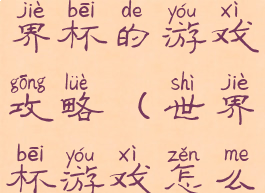 jiè bēi de yóu xì
界杯的游戏
gōng lüè shì jiè
攻略（世界
bēi yóu xì zěn me
杯游戏怎么